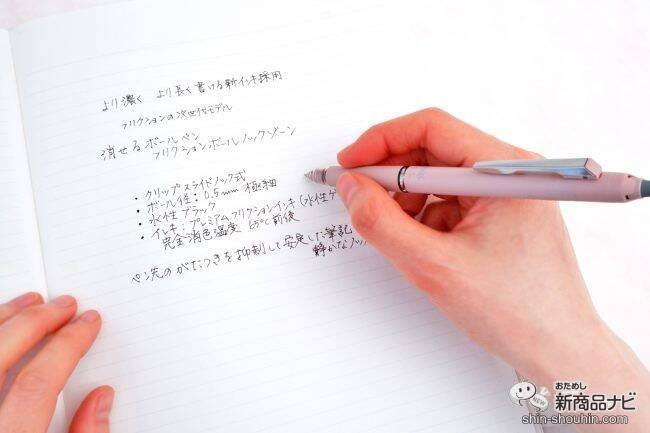 より濃く より長く書ける新インキ採用
フリクションの次世代モデル
消せるボールペン
フリクションボールノックゾーン
・クリップスライドノック式
・ボール径：0.5mm 極細
・水性ブラック
・インキ：プレミアムフリクションインキ（水性ゲ
完全消色温度 65℃前後
ペン先のがたつきを抑制して安定した筆記
静かなノッ
おためし
新商品ナビ
NEW
shin-shouhin.com